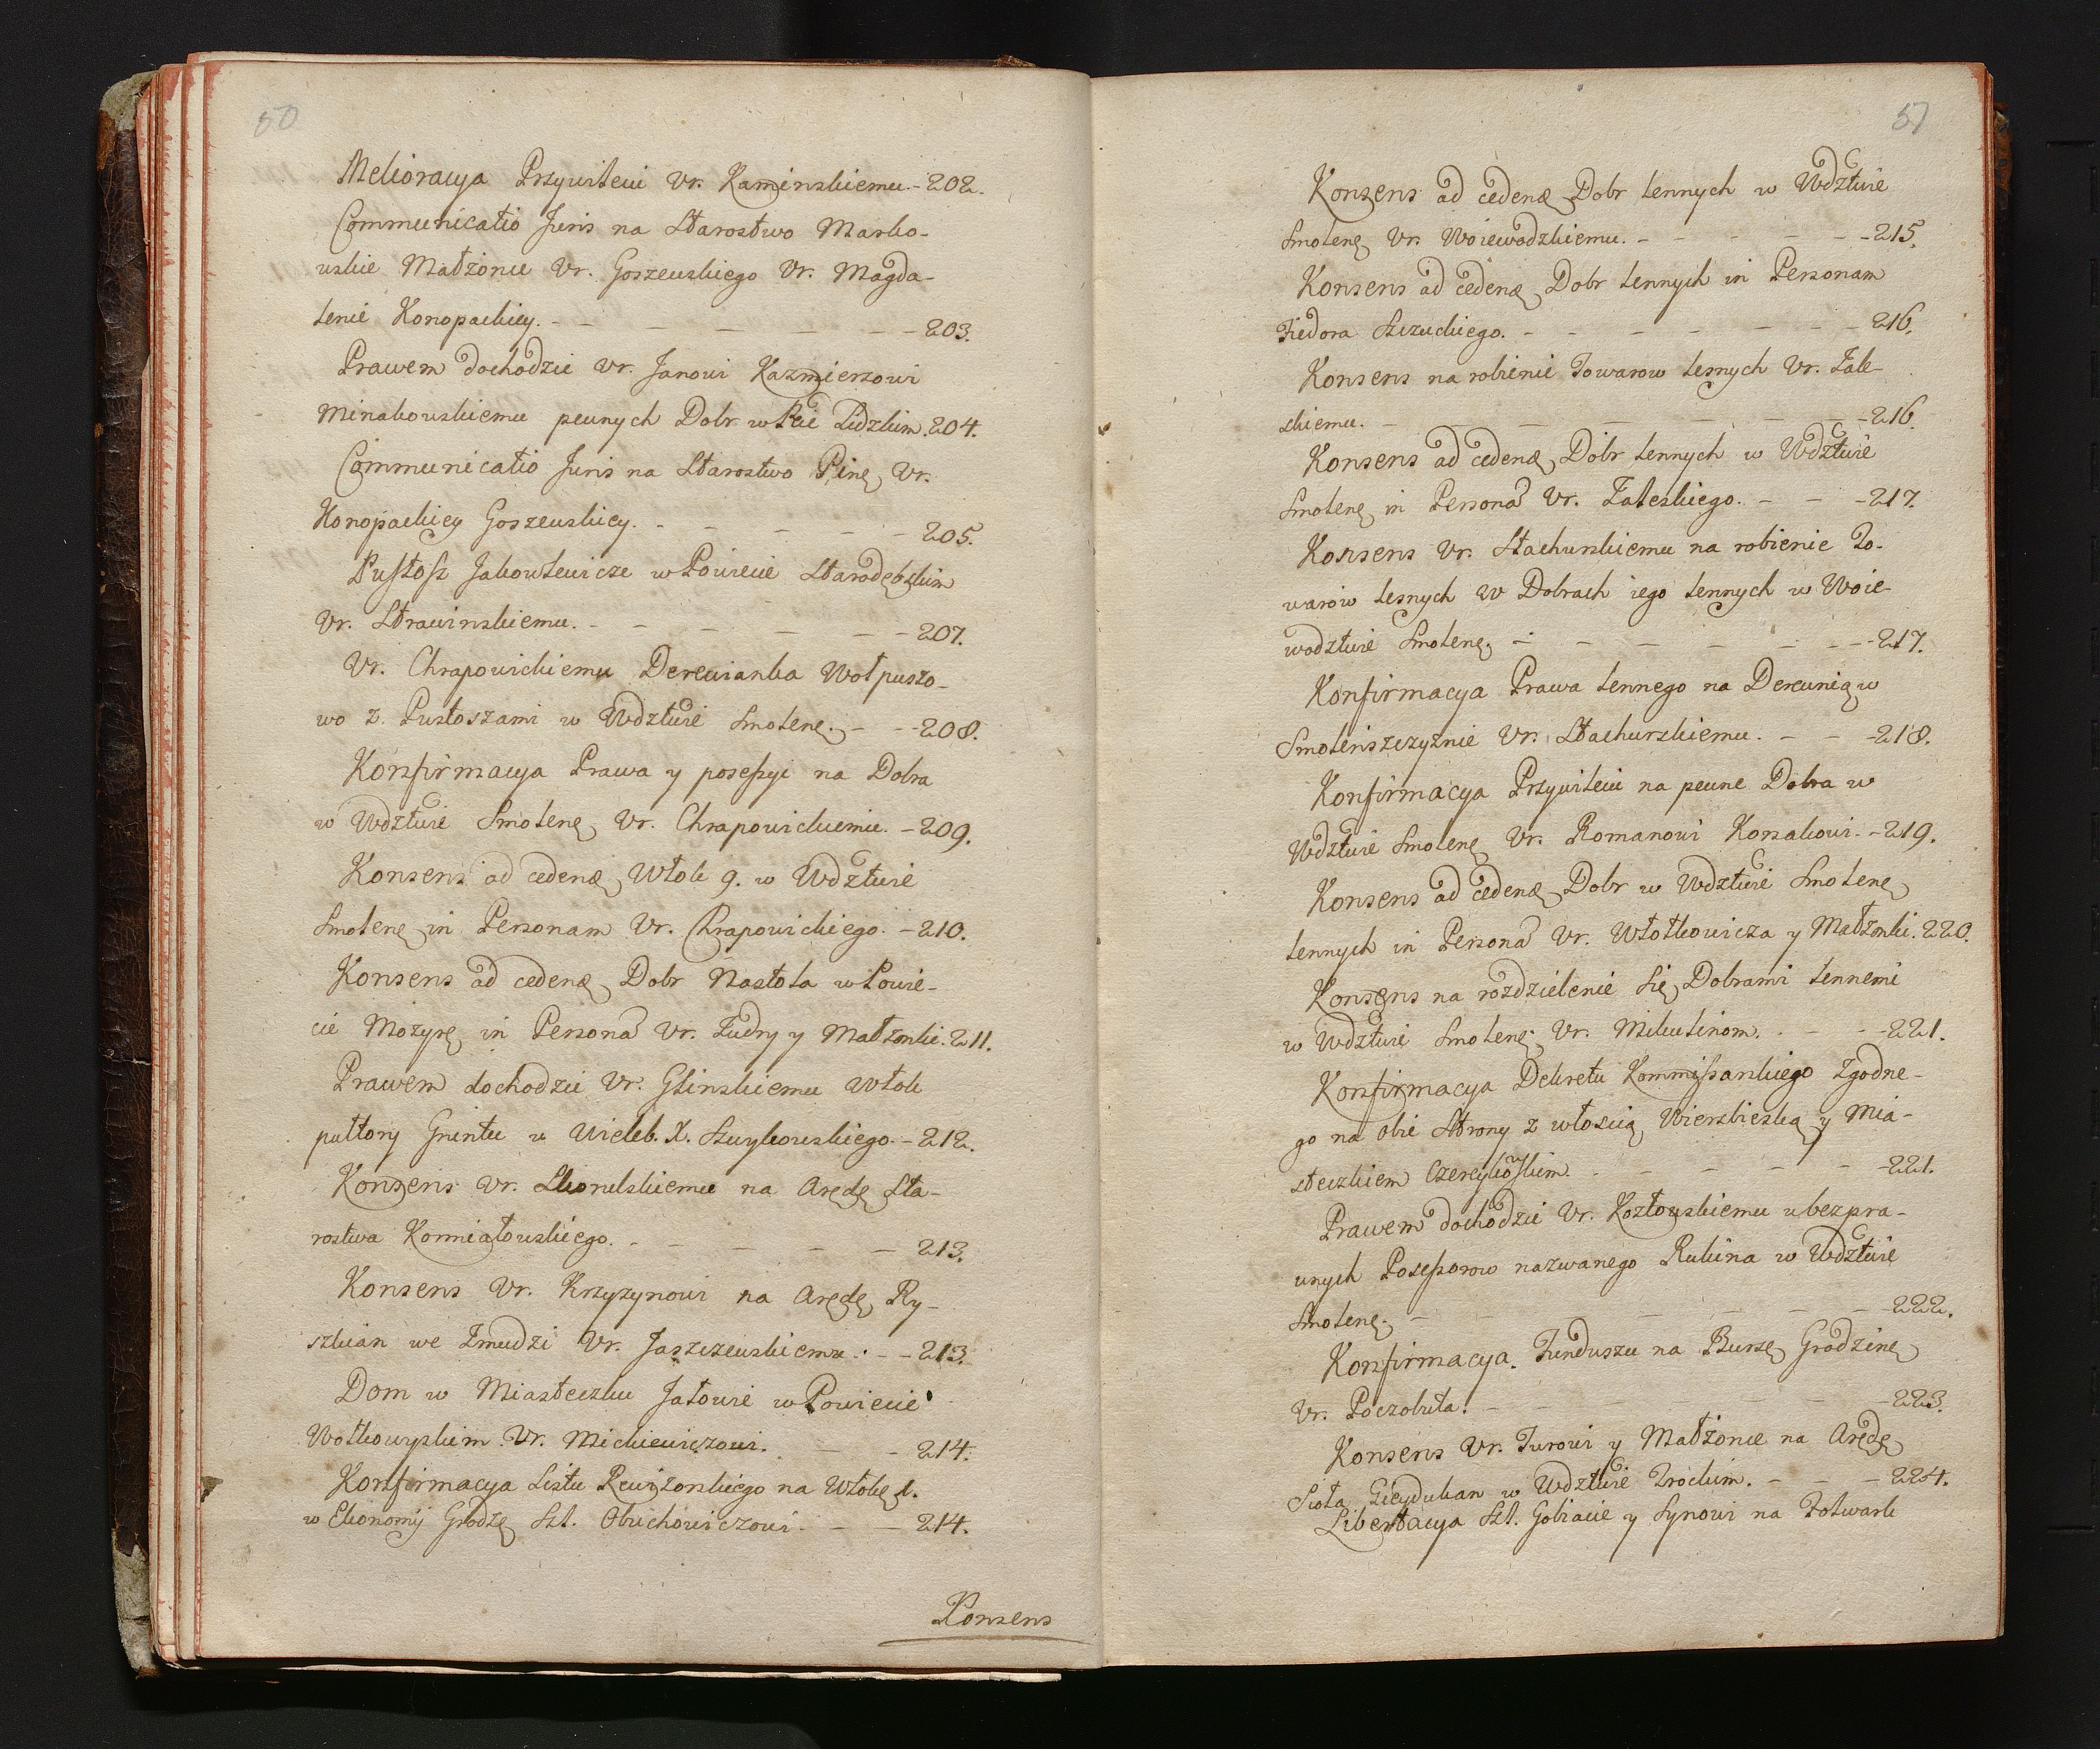 50
Melioracya Przywileiu Ur. Kaminskiemu. - 202.
Communicatio Juris na Starostwo Marko-
wskie Małżonce Ur. Goszewskiego Ur. Magda-
lenie Konopackiey. - - - - - - 203.
Prawem dochodzic Ur. Janowi Kazmierzowi
Minakowskiemu pewnych Dobr w Pcie Lidzkim. 204.
Communicatio Juris na Starostwo Pinę Ur.
Konopackiey Goszewskiey. - - - - - 205.
Pustosz Jakowlewicze w Powiecie Starodębskim
Ur. Strawinskiemu. - - - - - - 207.
Ur. Chrapowickiemu Derewianka Wołpuszo-
wo z Pustoszami w Wdztwie Smolenę. - - - 208.
Konfirmacya Prawa y possessyi na Dobra
w Wdztwie Smolenę Ur. Chrapowickiemu. - 209.
Konsens ad cedenę Włok 9. w Wdztwie
Smolenę in Personam Ur. Chrapowickiego. - 210.
Konsens ad cedenę Dobr Nastola w Powie-
cie Mozyrę in Personã Ur. Łudzy y Małżonki. 211.
Prawem dochodzic Ur. Glinskiemu Włok
pułtory Gruntu u Wieleb. X. Szwykowskiego. - 212.
Konsens Ur. Skorulskiemu na Arędę Sta-
rostwa Korniałowskiego. - - - - - 213.
Konsens Ur. Krzyzynowi na Arędę Ry-
szkian we Żmudzi Ur. Jaszczewskiemu. - - 213.
Dom w Miasteczku Jałowie w Powiecie
Wołkowyskim Ur. Mickiewiczowi. - - 214.
Konfirmacya Listu Rewizorskiego na Włokę 1.
w Ekonomij Grodzę Szl. Obuchowiczowi. - - 214.
Konsens
51
Konsens ad cedenę Dobr lennych w Wdztwie
Smolenę Ur. Woiewodzkiemu. - - - - - 215.
Konsens ad cedenę Dobr lennych in Personam
Fiedora Szczuckiego. - - - - - - 216.
Konsens na robienie Towarow lesnych Ur. Zale-
skiemu. - - - - - - 216.
Konsens ad cedenę Dobr lennych w Wdztwie
Smolenę in Personã Ur. Zaleskiego. - - - 217.
Konsens Ur. Stachurskiemu na robienie To-
warow lesnych w Dobrach iego lennych w Woie-
wodztwie Smolenę. - - - - - - 217.
Konfirmacya Prawa lennego na Derewnią w
Smolenszczyznie Ur. Stachurskiemu. - - - 218.
Konfirmacya Przywileiu na pewne Dobra w
Wdztwie Smolenę Ur. Romanowi Korsakowi. - 219.
Konsens ad cedenę Dobr w Wdztwie Smolenę
lennych in Personã Ur. Wtotkowicza y Małżonki. 220.
Konsens na rozdzielenie się Dobrami lennemi
w Wdztwie Smolenę Ur. Milutinom. - - - 221.
Konfirmacya Dekretu Kommissarskiego Zgodne-
go na obie Strony z włoscią Wierzbieską y Mia-
steczkiem Czerey - - - - - 221.
Prawem dochodzic Ur. Kozłowskiemu u bezpra-
wnych Possessorow nazwanego Rubina w Wdztwie
Smolenę. - - - - - - 222.
Konfirmacya Funduszu na Bursę Grodzinę
Ur. Poczobuta. - - - - - - 223.
Konsens Ur. Turowi y Małżonce na Arędę
Sioła Gieydukan w Wdztwie Trockim. - - - 224.
Libertacya Szl. Gobiacie y Synowi na Folwark